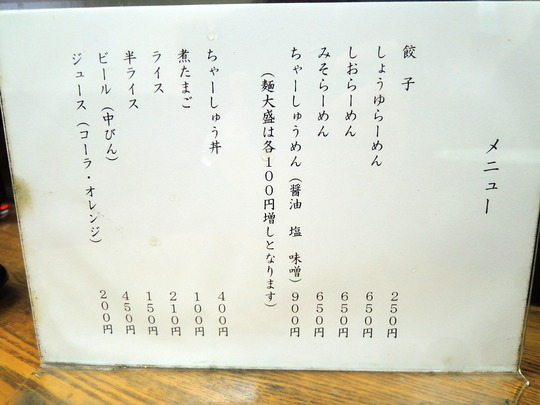 メニュー
餃子 250円
しょうゆらーめん 650円
しおらーめん 650円
みそらーめん 650円
ちゃーしゅうめん(醤油 塩 味噌) 900円
(麺大盛は各100円増しとなります)
ちゃーしゅう丼 400円
煮たまご 100円
ライス 210円
半ライス 150円
ビール(中びん) 450円
ジュース(コーラ・オレンジ) 200円